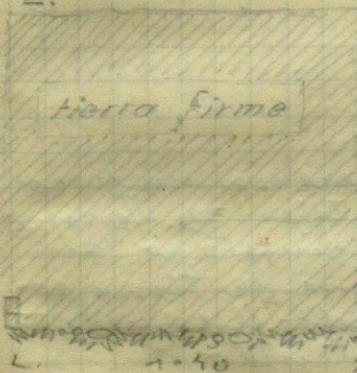 tierra firme
L. 1.40